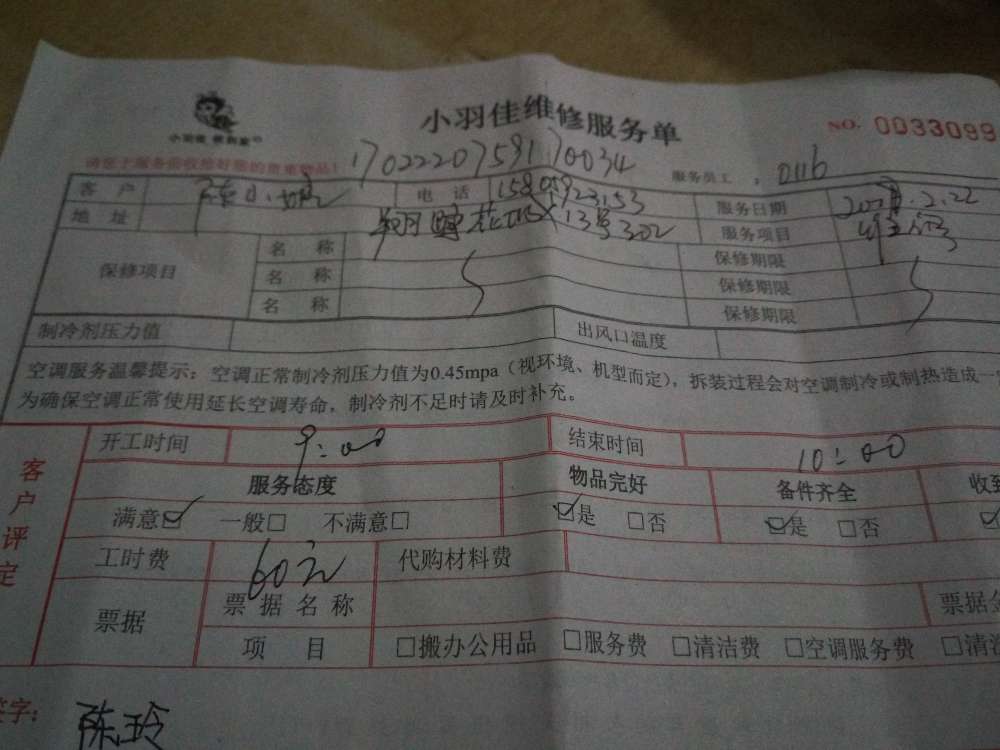 小羽佳维修服务单
NO. 0033099
17022207591170034
服务员工： 0116
客户 电话 服务日期
地址 13号302 服务项目
保修项目 名称 保修期限
名称 保修期限
名称 保修期限
制冷剂压力值 出风口温度
空调服务温馨提示：空调正常制冷剂压力值为0.45mpa（视环境、机型而定），拆装过程会对空调制冷或制热造成一
为确保空调正常使用延长空调寿命，制冷剂不足时请及时补充。
客户评定
开工时间 9:00 结束时间 10:00
服务态度 物品完好 备件齐全 收到
满意☑ 一般□ 不满意□ ☑是 □否 ☑是 □否 ☑
工时费 60元 代购材料费
票据 票据名称 票据金
项目 □搬办公用品 □服务费 □清洁费 □空调服务费 □清洁
签字： 陈玲